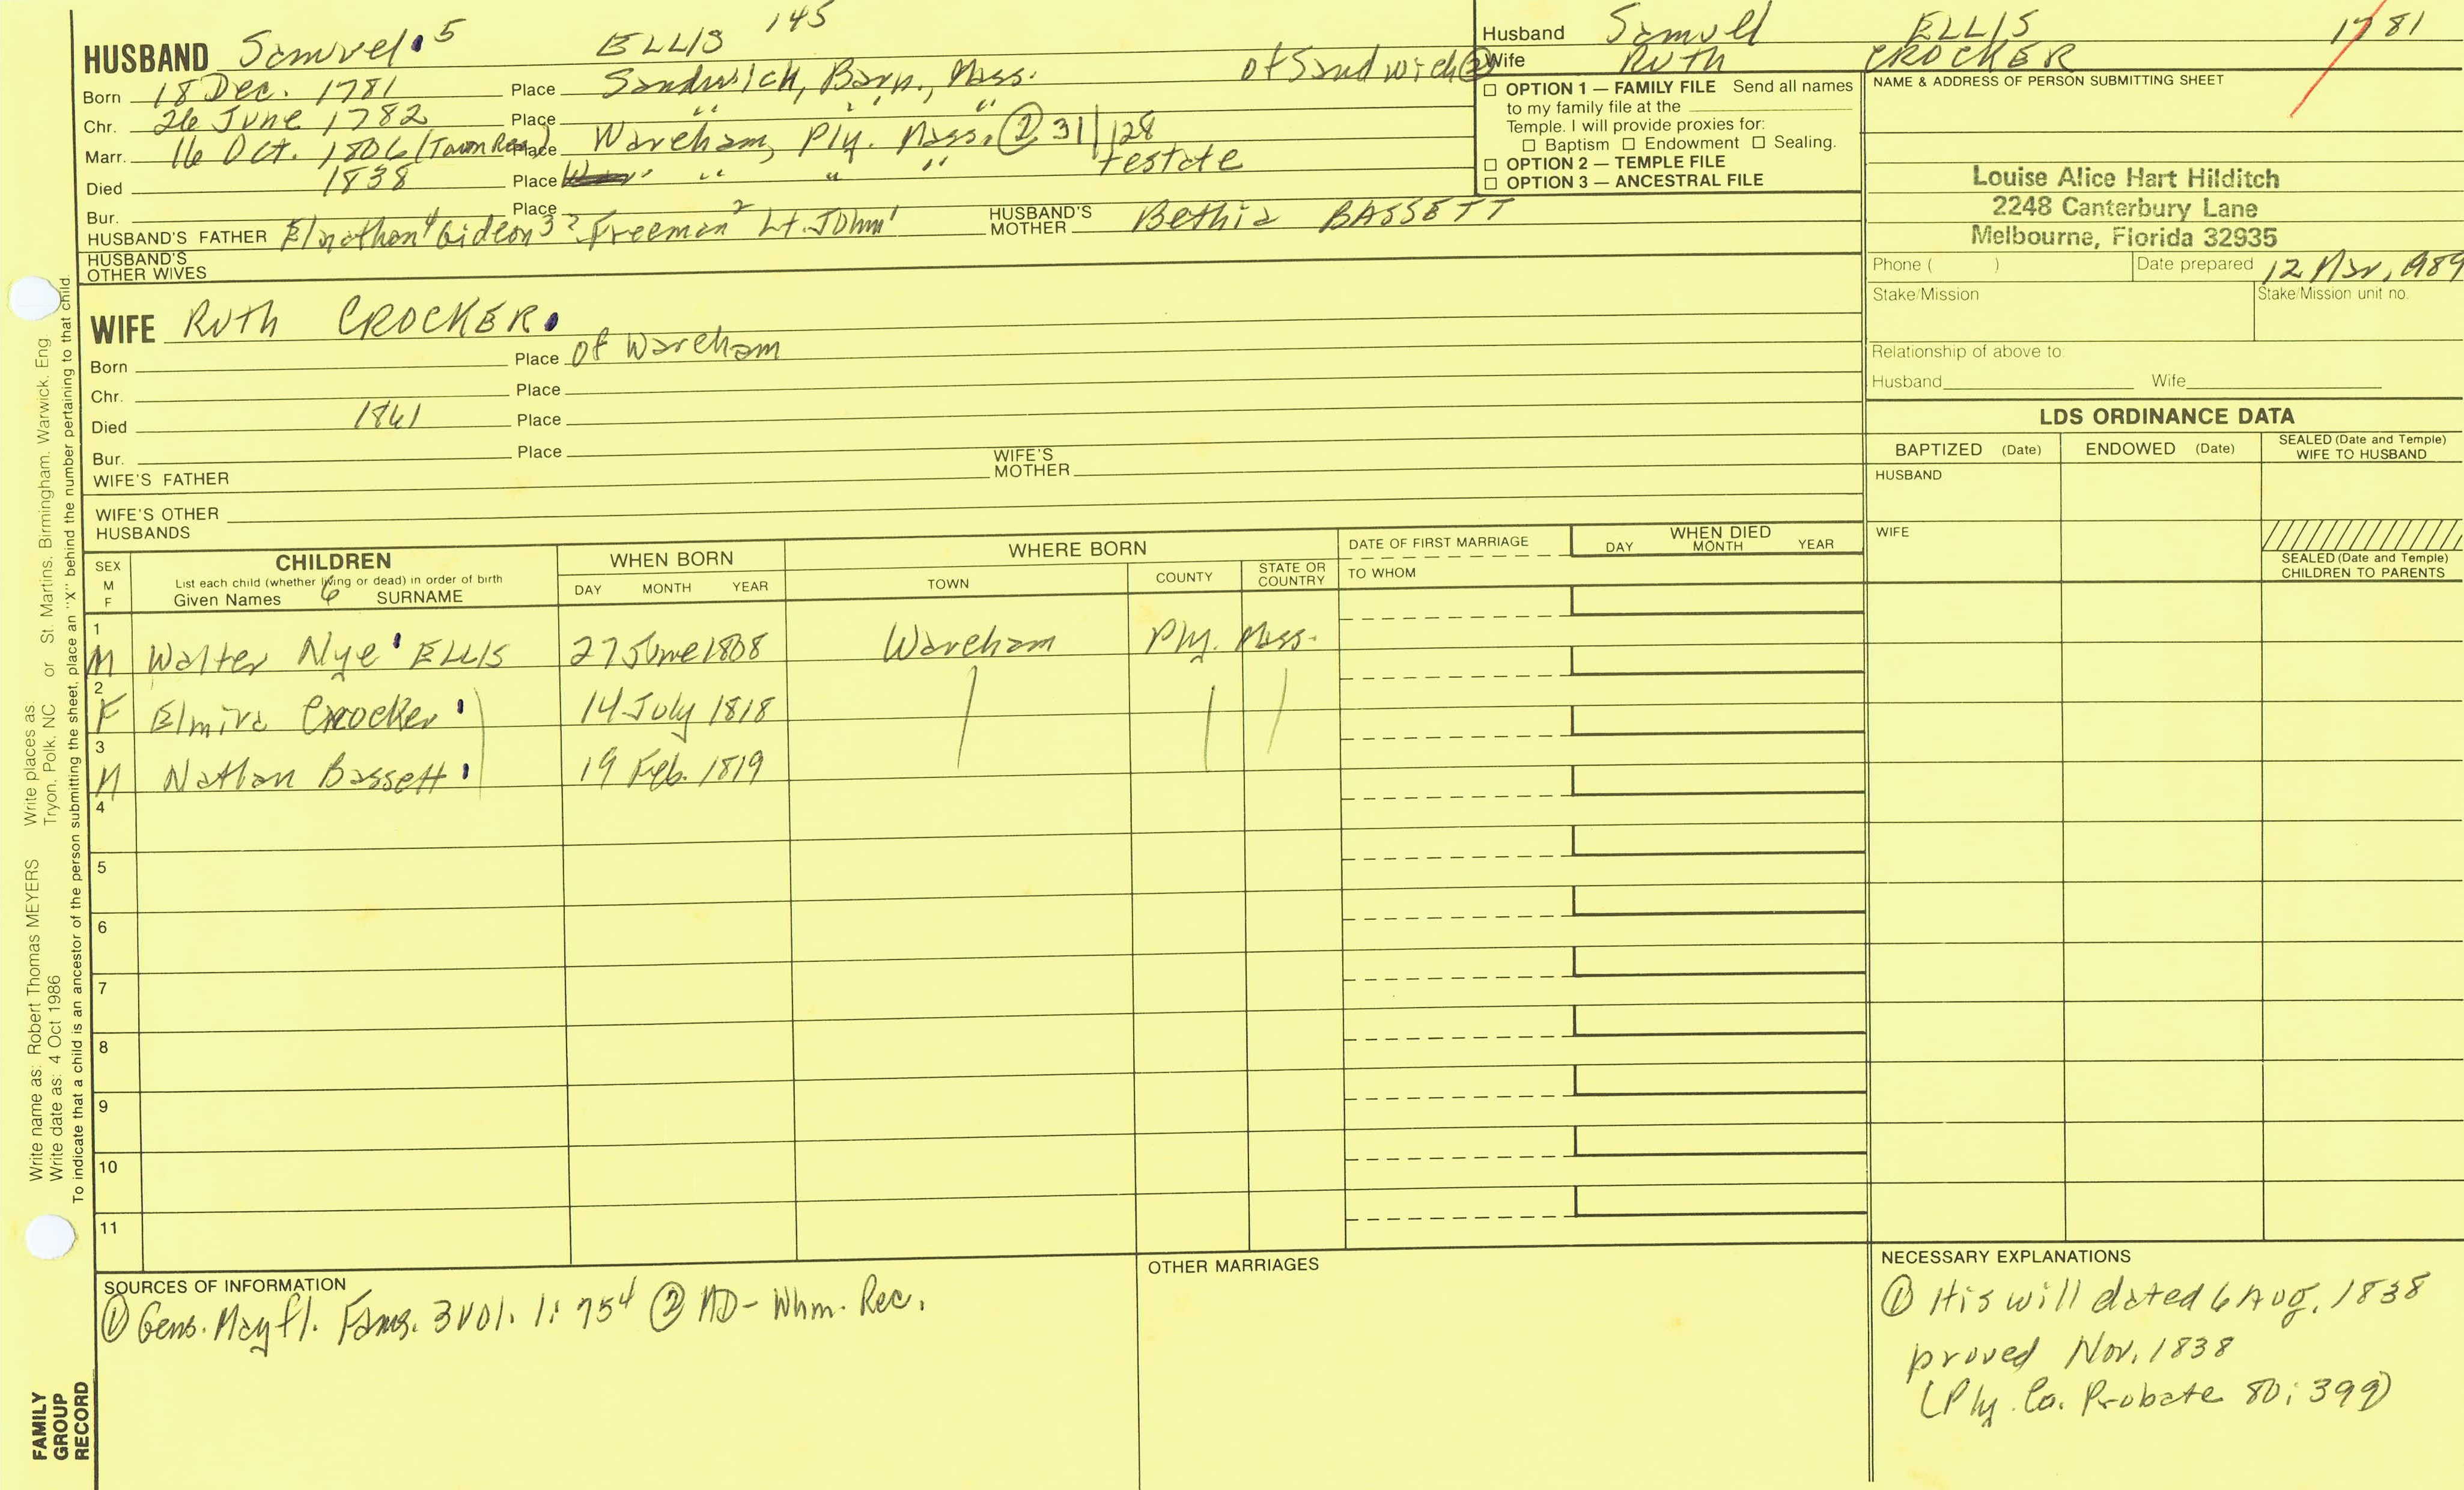 145
HUSBAND Samuel 5 ELLIS
Born 18 Dec. 1781 Place Sandwich, Barn., Mass. of Sandwich ②
Chr. 26 June 1782 Place " " "
Marr. 16 Oct. 1806 (Town Rec.) Place Wareham, Ply. Mass. ② 31/128
Died 1838 Place " " " testate
Bur. Place
HUSBAND'S FATHER Elnathan 4 Gideon 3 ? Freeman 2 Lt. John 1 HUSBAND'S MOTHER Bethia BASSETT
HUSBAND'S OTHER WIVES
Husband Samuel ELLIS 1781
Wife RUTH CROCKER
☐ OPTION 1 — FAMILY FILE Send all names
to my family file at the
Temple. I will provide proxies for:
☐ Baptism ☐ Endowment ☐ Sealing.
☐ OPTION 2 — TEMPLE FILE
☐ OPTION 3 — ANCESTRAL FILE
NAME & ADDRESS OF PERSON SUBMITTING SHEET
Louise Alice Hart Hilditch
2248 Canterbury Lane
Melbourne, Florida 32935
Phone ( ) Date prepared 12 Mar, 1989
Stake/Mission Stake/Mission unit no.
Relationship of above to:
Husband Wife
WIFE Ruth CROCKER
Born Place of Wareham
Chr. Place
Died 1861 Place
Bur. Place
WIFE'S FATHER WIFE'S MOTHER
WIFE'S OTHER HUSBANDS
LDS ORDINANCE DATA
BAPTIZED (Date) ENDOWED (Date) SEALED (Date and Temple) WIFE TO HUSBAND
HUSBAND
WIFE
SEALED (Date and Temple) CHILDREN TO PARENTS
SEX M F
CHILDREN
List each child (whether living or dead) in order of birth
Given Names 6 SURNAME
WHEN BORN
DAY MONTH YEAR
WHERE BORN
TOWN COUNTY STATE OR COUNTRY
DATE OF FIRST MARRIAGE
TO WHOM
WHEN DIED
DAY MONTH YEAR
1 M Walter Nye ELLIS 27 June 1808 Wareham Ply. Mass.
2 F Elmira Crocker 14 July 1818
3 M Nathan Bassett 19 Feb. 1819
4
5
6
7
8
9
10
11
SOURCES OF INFORMATION
① Gens. Mayfl. Fams. 3 Vol. 1: 754 ② MD - Whm. Rec.
OTHER MARRIAGES
NECESSARY EXPLANATIONS
① His will dated 6 Aug. 1838
proved Nov. 1838
(Ply. Co. Probate 80: 399)
Write name as: Robert Thomas MEYERS Write places as: Tryon, Polk, NC or St. Martins, Birmingham, Warwick, Eng
Write date as: 4 Oct 1986
To indicate that a child is an ancestor of the person submitting the sheet, place an "X" behind the number pertaining to that child.
FAMILY
GROUP
RECORD